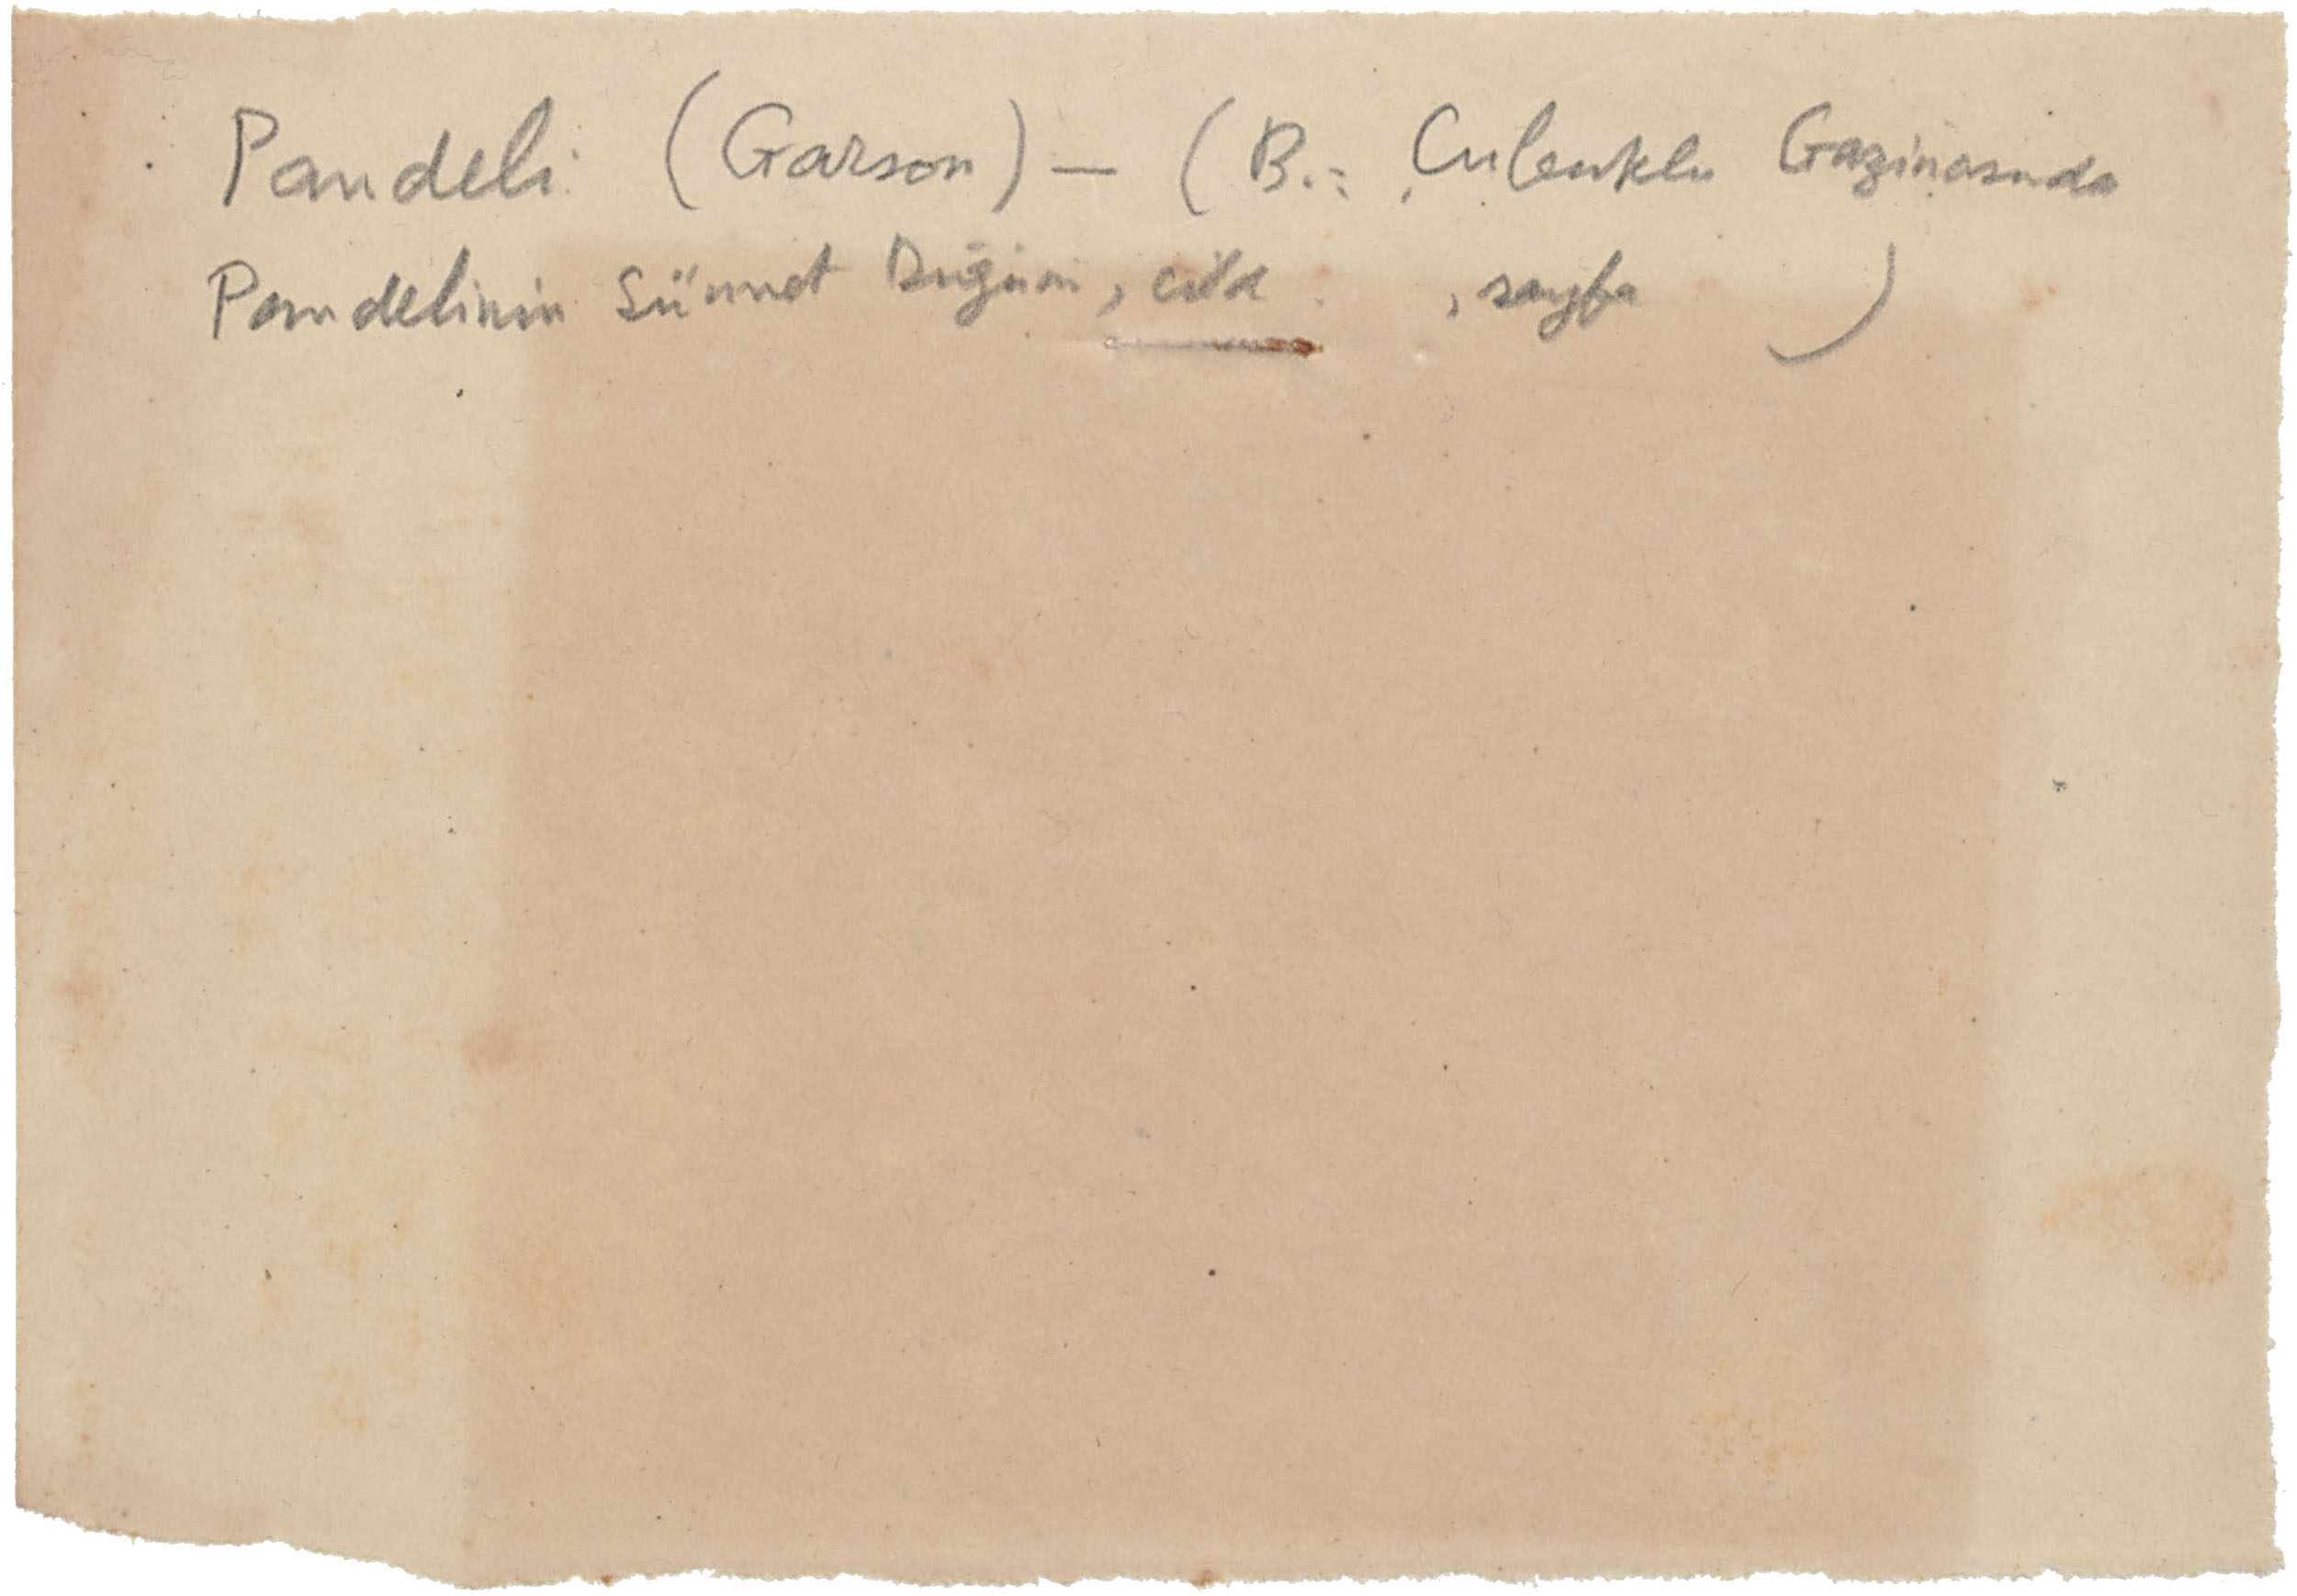 Pandeli (Garson) — (B.: Çubuklu Gazinosunda
Pandelinin Sünnet Düğünü, cild , sayfa )